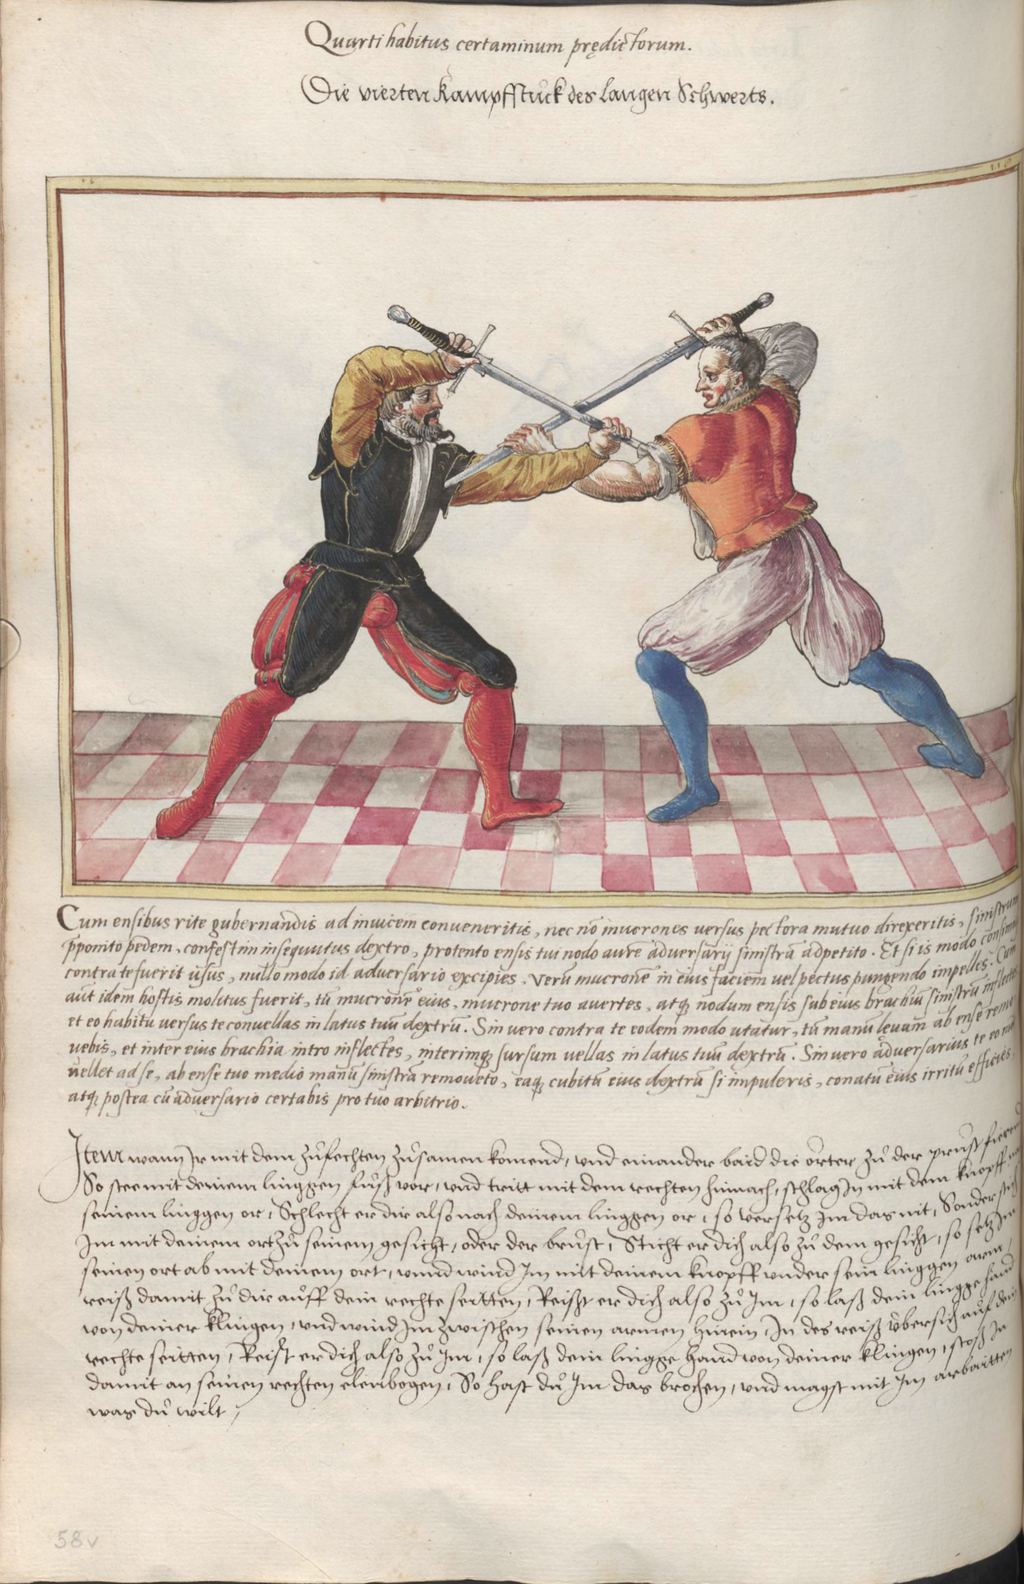 Quarti habitus certaminum prędictorum.
Die vierten Kampfstuck des Langen Schwerts.
Cum ensibus rite gubernandis ad inuicem conueneritis, nec nō mucrones uersus pectora mutuo direxeritis, sinistrum
pponito pedem, confestim insequutus dextro, protento ensis tui nodo aurē aduersarij sinistrā adpetito. Et si is modo consimili
contra te fuerit usus, nullo modo id aduersario excipies. Verū mucronē in eius faciem uel pectus pungendo impelles. Cum
aut idem hostis molitus fuerit, tū mucronē eius, mucrone tuo auertes, atq; nodum ensis sub eius brachiū sinistrū inflectes
et eo habitu uersus te conuellas in latus tuū dextrū. Sin uero contra te eodem modo utatur, tū manū leuam ab ense remo
uebis, et inter eius brachia intro inflectes, interimq; sursum uellas in latus tuū dextrū. Sin uero aduersarius te eo modo
uellet ad se, ab ense tuo medio manū sinistrā remoueto, eaq; cubitū eius dextrū si impuleris, conatū eius irritū efficies,
atq; postea cū aduersario certabis pro tuo arbitrio.
Item wann Jr mit dem zůfechten zůsamen komend, und einander baid die örter zů der prust
So stee mit deinem linggen fůß vor, und tritt mit dem rechten hinnach, schlag In mit dem knopff
seinem linggen or, Schlecht er dir also nach deinem linggen or, so versetz Im das nit, Sonder stich
Im mit deinem ort zů seinem gesicht, oder der brust, Sticht er dich also zů dem gesicht, so setz Im
seinen ort ab mit deinem ort, unnd wind Im mit deinem knopff under sein linggen arm,
reiß damit zů dir auff dein rechte seitten, Reißt er dich also zů Im, so laß dein lingge hand
von deiner klingen, und wind Im zwischen seinen armen hinein, In des reiß übersich auf dein
rechte seitten, Reißt er dich also zů Im, so laß dein lingge hand von deiner klingen, stoß In
damit an seinen rechten elenbogen, So hast dů Im das brochen, und magst mit Im arbaitten
was dů wilt,
58v